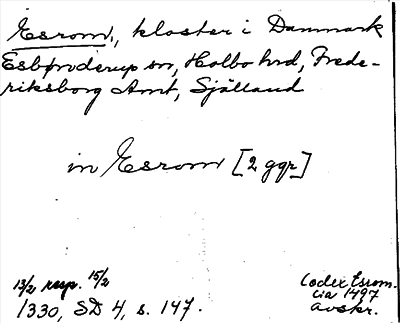 Esrom, kloster i Danmark
Esbønderup sn, Holbo hrd, Frede-
riksborg Amt, Sjælland
in Esrom [2 ggr]
13/2 resp. 15/2
1330, SD 4, s. 147.
Codex Esrom.
cia 1497
avskr.